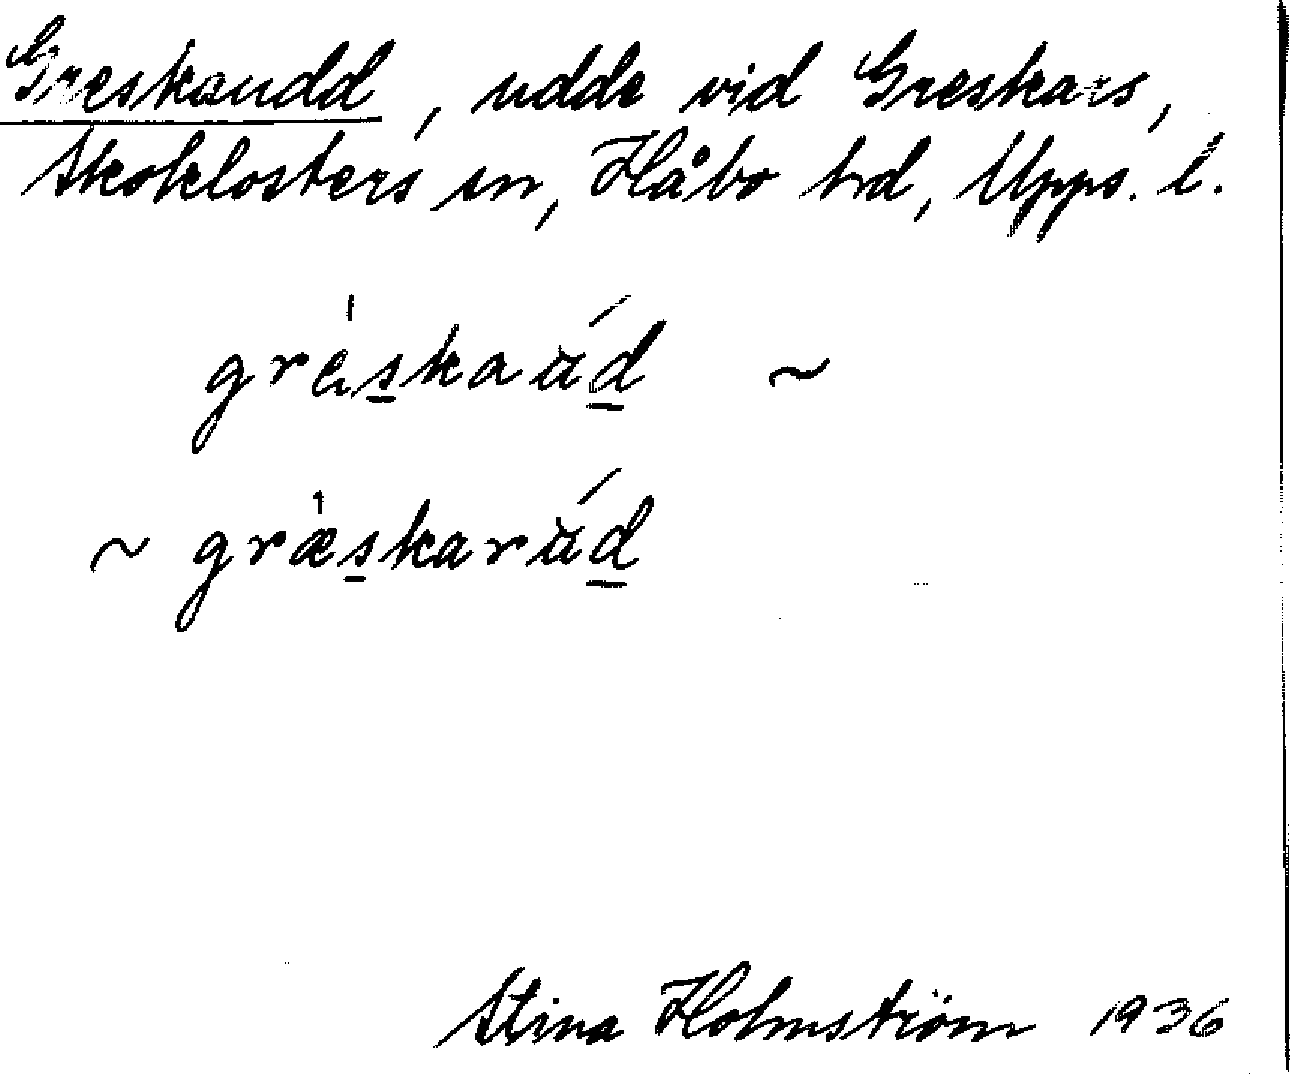 Greskaudd, udde vid Greskars,
Skoklosters sn, Håbo hd, Upps. l.
gräskaud ~
~ græskarud
Stina Holmström 1936